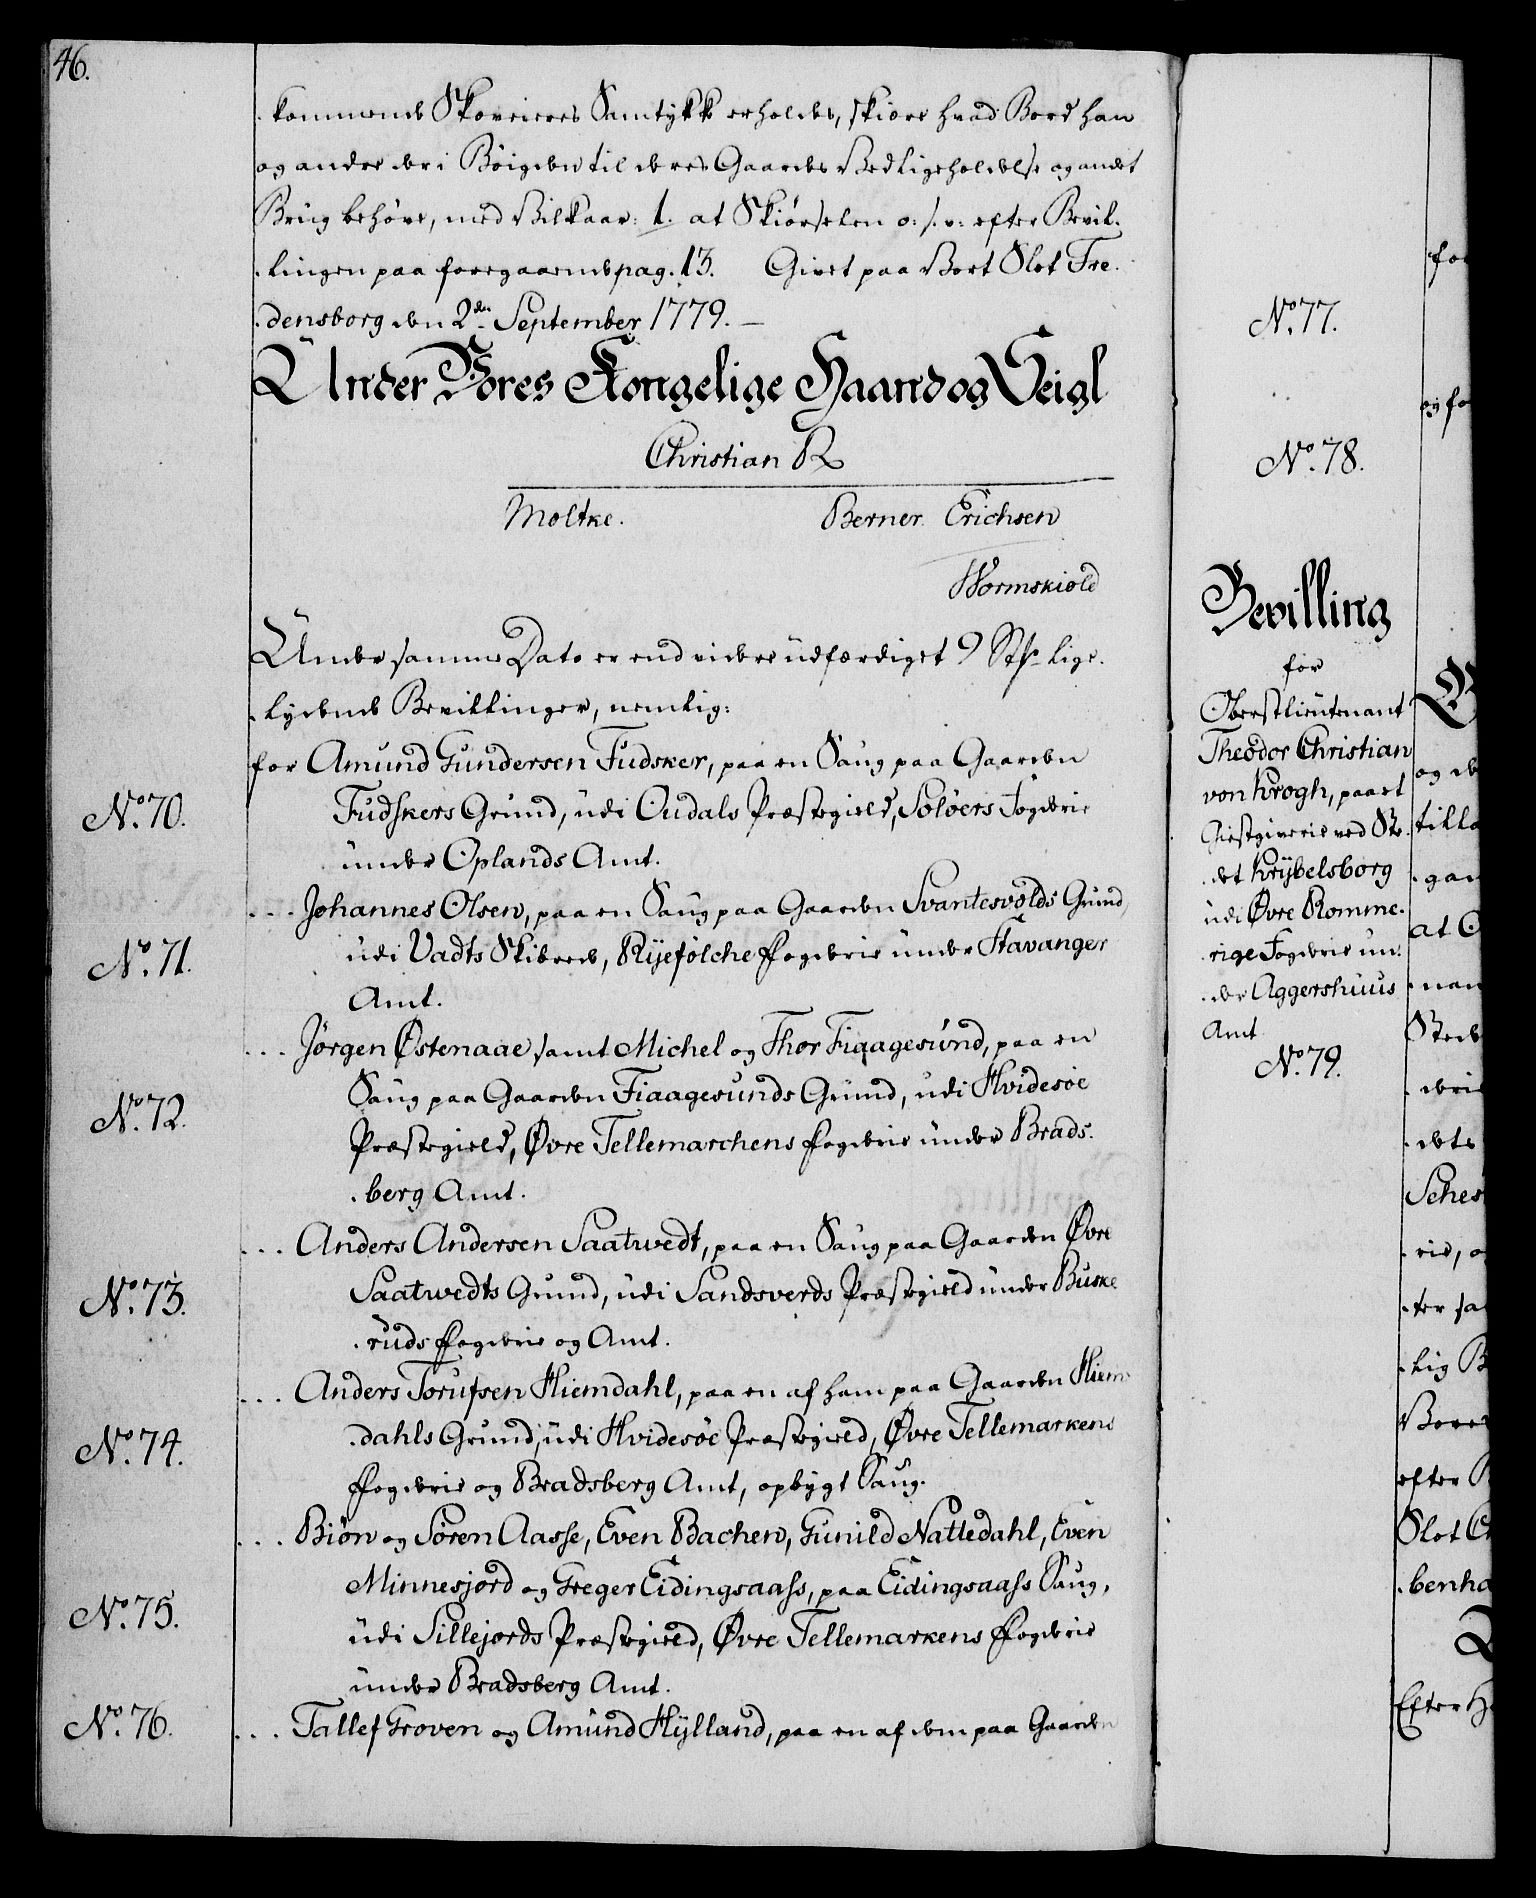 46.
kommende Skoveieres Samtykke erholdes, skiøre hvad Bord han
og andre der i Bøigden til deres Gaardes Vedligeholdelse og andet
Brug behøve, med Vilkaar: 1. at Skiørselen o: s: v: efter Bevil-
-lingen paa foregaaende pag. 13. Givet paa Vort Slot Fre-
-densborg den 2den September 1779. —
Under Vores Kongelige Haand og Seigl
Christian R
Moltke. Berner Erichsen
Wormskiold
Under samme Dato er end videre udfærdiget 9 Stk. lige-
-lydende Bevillinger, nemlig:
for Amund Gundersen Fudsker, paa en Saug paa Gaarden
No. 70. Fudskers Grund, udi Oudals Præstegield, Soløers Fogderie
under Oplands Amt.
... Johannes Olsen, paa en Saug paa Gaarden Svantesvolds Grund,
No. 71. udi Vadts Skibrede, Ryefølche Fogderie under Stavanger
Amt.
... Jørgen Østenaae samt Michel og Thor Fiaagesund, paa en
No. 72. Saug paa Gaarden Fiaagesunds Grund, udi Hvidesøe
Præstegield, Øvre Tellemarchens Fogderie under Brads-
-berg Amt.
... Anders Andersen Saatvedt, paa en Saug paa Gaarden Øvre
No. 73. Saatvedts Grund, udi Sandsverds Præstegield under Buske
-ruds Fogderie og Amt.
... Anders Torufsen Hiemdahl, paa en af ham paa Gaarden Hiem-
No. 74. -dahls Grund, udi Hvidesøe Præstegield, Øvre Tellemarkens
Fogderie og Bradsberg Amt, opbygt Saug.
... Biøn og Søren Aasse, Even Bachen, Gunild Nattedahl, Even
No. 75. Minnesjord og Greger Eidingsaass, paa Eidingsaass Saug,
udi Sillejords Præstegield, Øvre Tellemarkens Fogderie
under Bradsberg Amt.
No. 76. ... Tallef Groven og Amund Hylland, paa en af dem paa Gaarden
No. 77.
No. 78.
Bevilling
for
Oberstlieutenant
Theodor Christian
von Krogh, paa et
Giestgiverie ved Ste-
-det Krybelsborg
udi Øvre Romme-
-rige Fogderie un-
-der Aggershuus
Amt
No. 79.
og fo
og de
tilla
-gan
at C
-nan
Sted
-derie
-dets
Sches
-rie, o
-ter sa
-lig B
Vores
efter
Slot C
-benha
Efter H